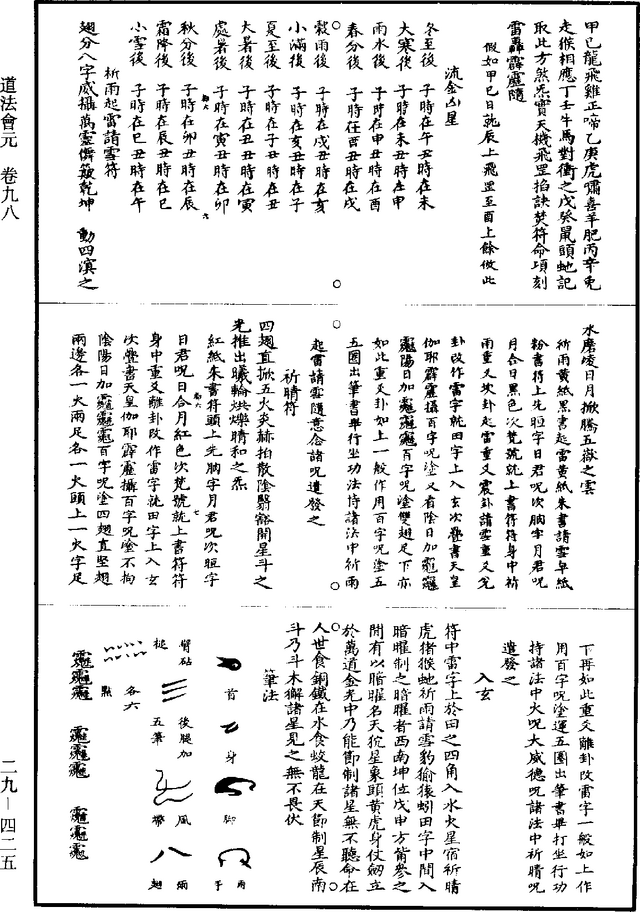 道法會元 卷九八
二九－四二五
甲己龍飛雞正啼乙庚虎嘯喜羊肥丙辛兔
走猴相應丁壬牛馬對衝之戊癸鼠頭蛇記
取此方煞炁實天機飛罡掐訣焚符命頃刻
雷轟霹靂隨
假如甲己日就辰上飛罡至酉上餘倣此
流金凶星
冬至後 子時在午丑時在未
大寒後 子時在未丑時在申
雨水後 子時在申丑時在酉
春分後 子時在酉丑時在戌
穀雨後 子時在戌丑時在亥
小滿後 子時在亥丑時在子
夏至後 子時在子丑時在丑
大暑後 子時在丑丑時在寅
處暑後 子時在寅丑時在卯
秋分後 子時在卯丑時在辰
霜降後 子時在辰丑時在巳
小雪後 子時在巳丑時在午
祈雨起雷請雪符
翅分八字威攝萬靈儕簸乾坤 動四溟之
水磨凌日月掀騰五嶽之雲
祈雨黃紙黑書起雷黃紙朱書請雪皁紙
粉書符上先晅字日君呪次朒字月君呪
月合日黑色次梵號就上書符符身中祈
雨重爻坎卦起雷重爻震卦請雪重爻兌
卦改作雷字就田字上入玄次疊書天皇
伽耶霹靂攝百字呪塗又看陰日加
陽日加 百字呪塗雙翅足下亦
如此重爻卦如上一般作用百字呪塗五
圈出筆書畢行坐功法恃諸法中祈雨
起雷請雪隨意念諸呪遣發之
祈晴符
四翅直掀五火炎赫拍散陰翳豁開星斗之
光推出曦輪烘爍晴和之炁
紅紙朱書符頭上先朒字月君呪次晅字
日君呪日合月紅色次梵號就上書符符
身中重爻離卦改作雷字就田字上入玄
次疊書天皇伽耶霹靂攝百字呪塗不拘
陰陽日加 百字呪塗四翅直竪翅
兩邊各一火兩足各一火頭上一火字足
下再如此重爻離卦改雷字一般如上作
用百字呪塗運五圈出筆書畢打坐行功
持諸法中火呪大威德呪諸法中祈晴呪
遣發之
入玄
符中雷字上於田之四角入水火星宿祈晴
虎猪猴蛇祈雨請雪豹㺄猿蚓田字中間入
暗曜制之暗曜者西南坤位戊申方觜參之
間有以暗曜名天㺄星象頭黃虎身仗劒立
於萬道金光中乃能節制諸星無不聽命在
人世食銅鐵在水食蛟龍在天節制星辰南
斗乃斗木獬諸星見之無不畏伏
筆法
首
身
脚
雨
子
臂砧
槌
後腿加
五筆
風
帶
兩
翅
各六
點